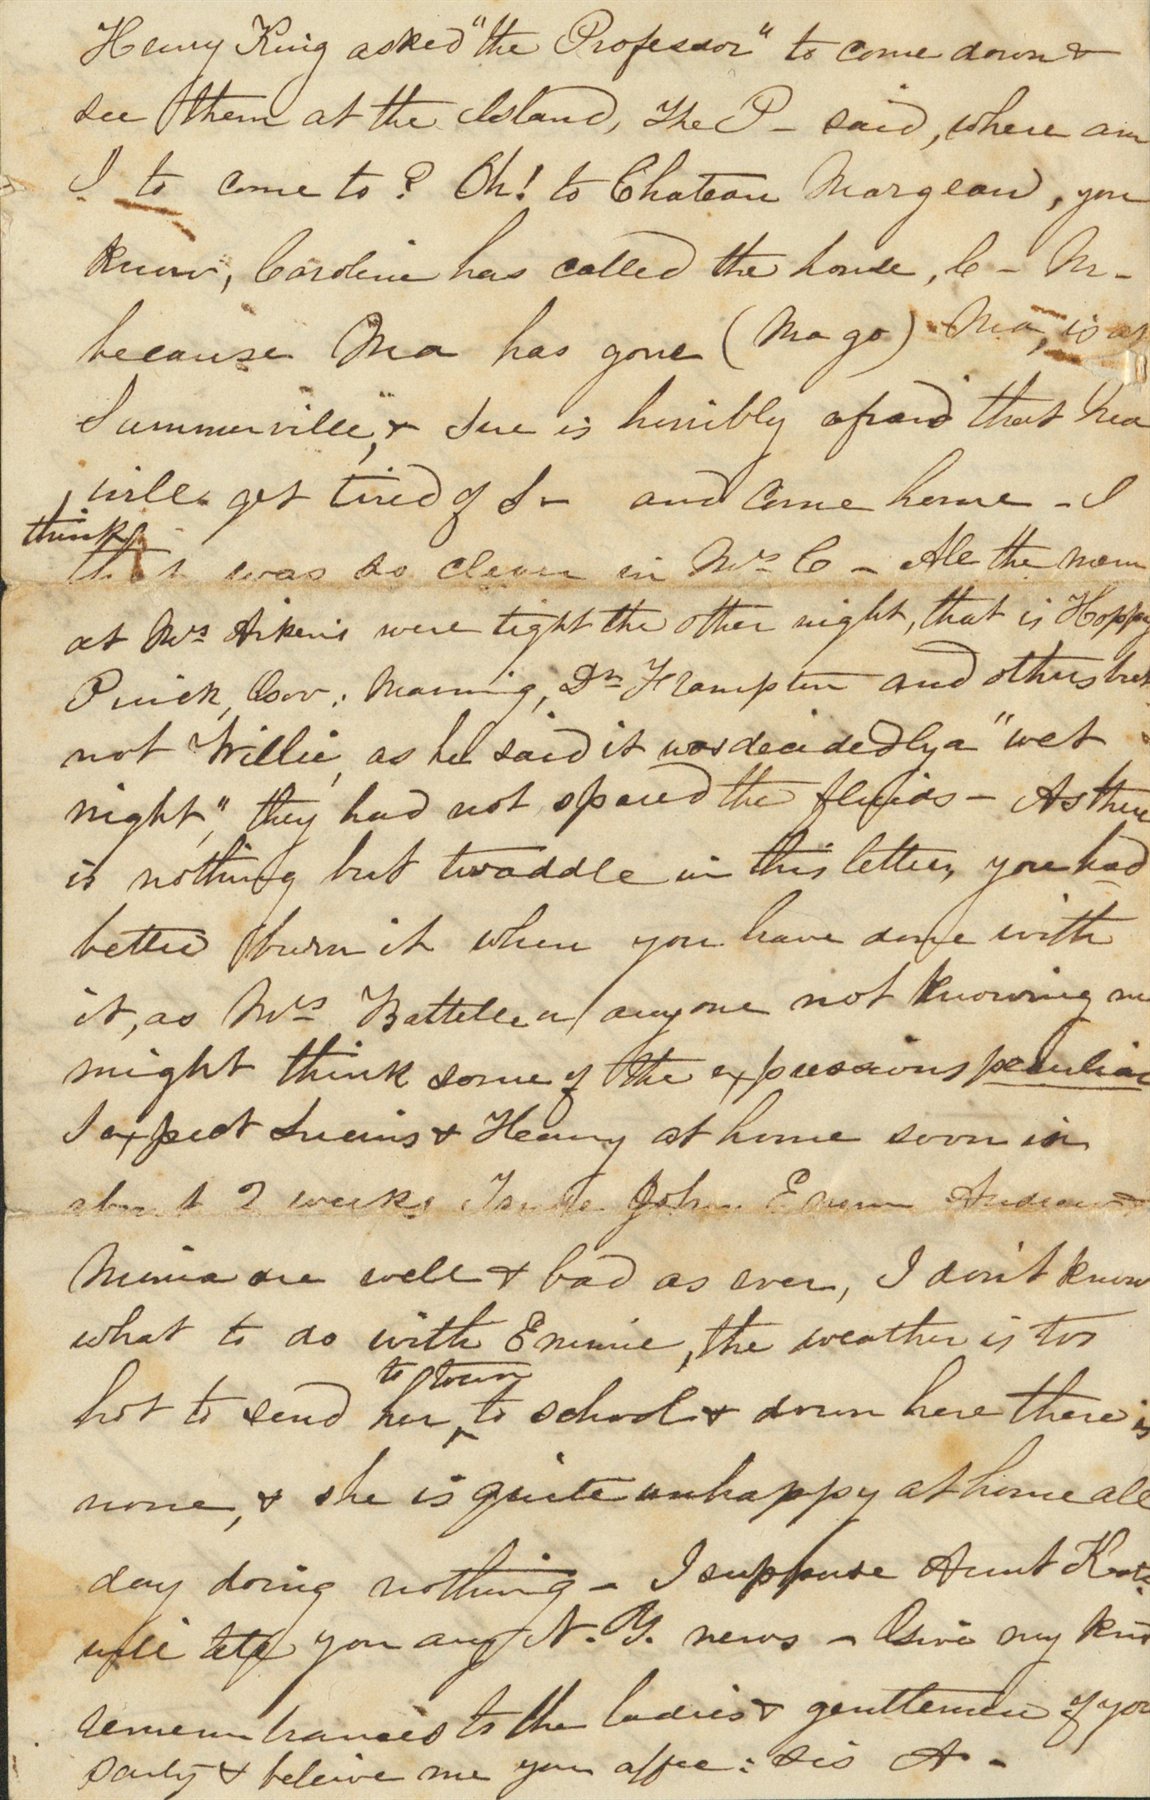 Henry King asked "the Professor" to come down &
see them at the Island, The P - said, where am
I to come to? Oh! to Chateau Margeaux, you
know, Caroline has called the house, C - M -
because Ma has gone (Ma go) Ma, is at
Summerville, & Sue is horribly afraid that Ma
will get tired of S - and come home - I
think
that was so clever in Mrs C - All the men
at Mrs Aiken's were tight the other night, that is Hoppy
Prick, Gov: Manning, Dr Frampton and others but
not Willie, as he said it was decidedly a "wet
night", they had not spared the fluids - As there
is nothing but twaddle in this letter, you had
better burn it when you have done with
it, as Mrs Battelle or anyone not knowing me
might think some of the expressions peculiar
I expect Lucius & Henry at home soon in
about 2 weeks John Emm &
Minia are well & bad as ever, I don't know
what to do with Emmie, the weather is too
to town
hot to send her, to school & down here there is
none, & she is quite unhappy at home all
day doing nothing - I suppose Aunt Kate
will tell you any N. Y. news - Give my kind
remembrances to the ladies & gentlemen of your
party & beleive me your affec: sis A -